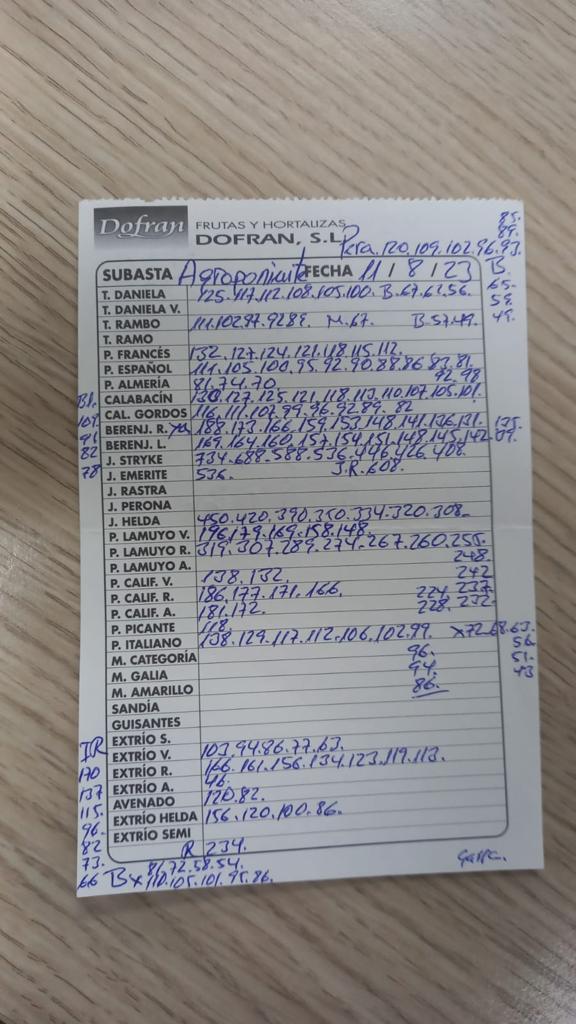 Dofran FRUTAS Y HORTALIZAS
DOFRAN, S.L.
85.
89.
Pera. 120, 109, 102, 96, 93.
SUBASTA Agroponiente FECHA 11 / 8 / 23 B.
65.
59.
49.
T. DANIELA 125. 117. 112. 108. 105. 100. B. 67. 61. 56.
T. DANIELA V.
T. RAMBO 111. 102. 97. 92 89. M. 67. B. 57. 49.
T. RAMO
P. FRANCÉS 132. 127. 124. 121. 118. 115. 112.
P. ESPAÑOL 111. 105. 100. 95. 92. 90. 88. 86. 83. 81.
P. ALMERÍA 81. 74. 70. 92. 98
CALABACÍN 130. 127. 125. 121. 118. 113. 110. 107. 105. 101.
CAL. GORDOS 116. 111. 107. 99. 96. 92 89. 82
BERENJ. R. 188. 173. 166. 159. 153. 148. 141. 136. 131. 135.
BERENJ. L. 169. 164. 160. 157. 154. 151. 148. 145. 142. 139.
Bl.
109
91
82
78
J. STRYKE 734. 688. 588. 536. 446. 426. 408.
J. EMERITE 536. J.R. 608.
J. RASTRA
J. PERONA
J. HELDA 450. 420. 390. 350. 334. 320. 308.
P. LAMUYO V. 196. 179. 169. 158. 148.
P. LAMUYO R. 319. 307. 289. 274. 267. 260. 255.
P. LAMUYO A. 248.
P. CALIF. V. 138. 132. 242
P. CALIF. R. 186. 177. 171. 166. 224. 237.
P. CALIF. A. 181. 172. 228. 232.
P. PICANTE 118.
P. ITALIANO 138. 129. 117. 112. 106. 102. 99. x72. 68. 63.
M. CATEGORÍA 96. 56.
M. GALIA 94. 51.
M. AMARILLO 86. 43
SANDÍA
GUISANTES
EXTRÍO S.
EXTRÍO V. 103. 94. 86. 77. 63.
EXTRÍO R. 166. 161. 156. 134. 123. 119. 113.
EXTRÍO A. 46.
AVENADO 120. 82.
EXTRÍO HELDA 156. 120. 100. 86.
EXTRÍO SEMI
IR
170
137
115.
96.
82
73.
66
R 234.
81. 72. 58. 54.
Bx 110. 105. 101. 95. 86.